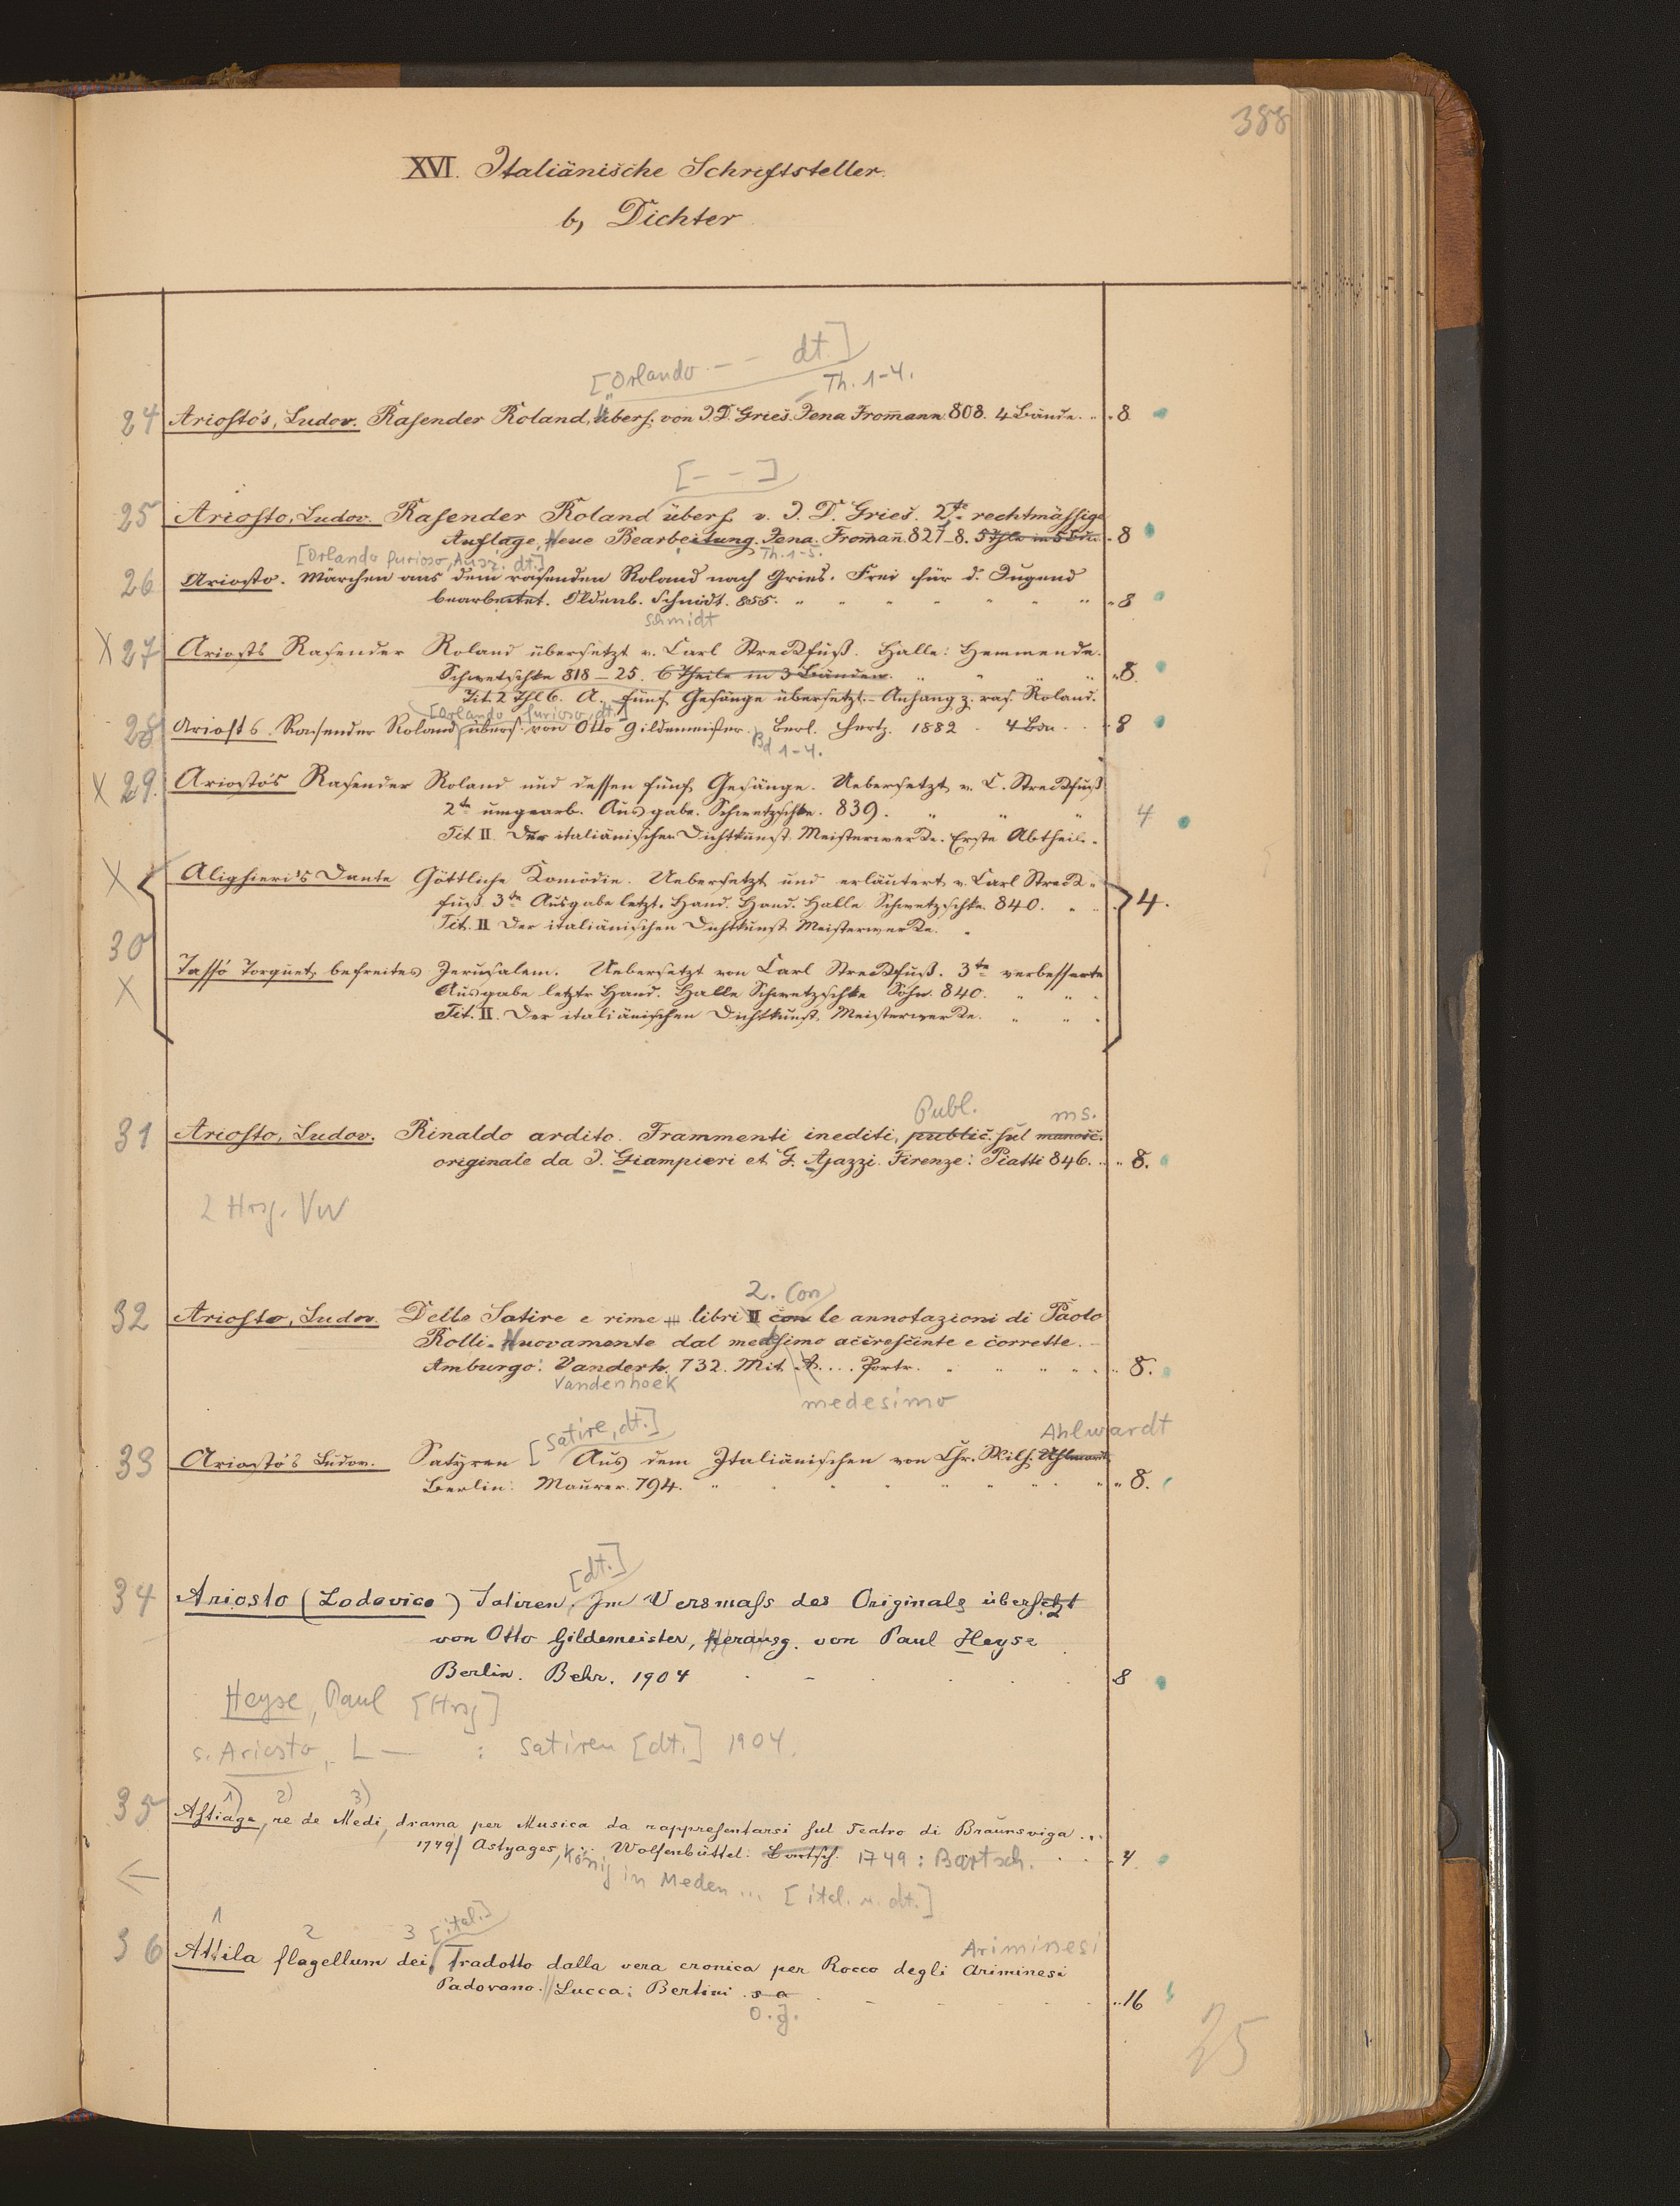 388
XVI. Italiänische Schriftsteller.
b, Dichter
[Orlando - - dt.]
Th. 1-4.
24 Ariosto's, Ludov. Rasender Roland, übers. von J. D. Gries. Jena From̄ann. 808. 4 Bände. " 8
[- - ]
25 Ariosto, Ludov. Rasender Roland übers. v. J. D. Gries. 2te rechtmässige
Auflage. Neue Bearbeitung. Jena. From̄an̄. 827-8. 5 Thle in 5 Bdn. " 8
[Orlando furioso, Ausz. dt.] Th. 1-5.
26 Ariosto. Märchen aus dem rasenden Roland nach Gries. Frei für d. Jugend
bearbeitet. Oldenb. Schmidt. 855. " " " " " " " " 8
Schmidt
X 27 Ariosts Rasender Roland übersetzt v. Carl Streckfuß. Halle: Hemmende.
Schwetschke 818-25. 6 Theile in 3 Bänden. " " " " " 8.
Tit. 2 Thl 6. A. fünf Gesänge übersetzt. - Anhang z. ras. Roland.
[Orlando furioso, dt.]
28 Ariosts Rasender Roland übers. von Otto Gildemeister. Berl. Hertz. 1882 - 4 Bdn. 8
Bd 1-4.
X 29. Ariosto's Rasender Roland und dessen fünf Gesänge. Uebersetzt v. C. Streckfuß
2te umgearb. Ausgabe. Schwetzschke. 839. " " " 4
Tit II. Der italiänischen Dichtkunst Meisterwerke. Erste Abtheil.
X Alighieri's Dante Göttliche Komödie. Uebersetzt und erläutert v. Carl Streck-
fuß 3te Ausgabe letzt. Hand. Hand. Halle Schwetzschke. 840. " " 4.
Tit. II Der italiänischen Dichtkunst Meisterwerke. "
30
X Tasso Torquet. befreites Jerusalem. Uebersetzt von Carl Streckfuß. 3te verbesserte
Ausgabe letztr Hand. Halle Schwetzschke Sohn. 840. " " "
Tit. II. Der italiänischen Dichtkunst Meisterwerke. " " "
Publ. ms.
31 Ariosto, Ludov. Rinaldo ardito. Frammenti inediti, public. sul manosc.
originale da J. Giampieri et G. Ajazzi. Firenze: Piatti 846. " " 8.
2 Hrsg. VW
2. Con
32 Ariosto, Ludov. Delle Satire e rime libri II con le annotazioni di Paolo
Rolli. Nuovamente dal medsimo accrescinte e corrette.
Amburgo: Vanderh. 732. Mit A.... Portr. " " " " " 8.
Vandenhoek
medesimo
[Satire, dt.] Ahlwardt
33 Ariosto's Ludov. Satyren Aus dem Italiänischen von Chr. Wilh. Ahlwardt
Berlin: Maurer. 794. " " " " " " " 8.
[dt.]
34 Ariosto (Lodovico) Satiren. Im Versmaſs des Originals übersetzt
von Otto Gildemeister, Herausg. von Paul Heyse
Berlin. Behr. 1904 8
Heyse, Paul [Hrsg]
s. Ariosto, L - : Satiren [dt.] 1904.
1) 2) 3)
35 Astiage, re de Medi, drama per Musica da rappresentarsi sul Teatro di Braunsviga ...
1749/ Astyages, ... Wolfenbüttel: Bartsch. 1749 : Bartsch. 4
König in Meden ... [ital. u. dt.]
1 2 3 [ital.]
Ariminesi
36 Attila flagellum dei Tradotto dalla vera cronica per Rocco degli Ariminesi
Padovano. Lucca: Bertini s a " 16
o. J.
25